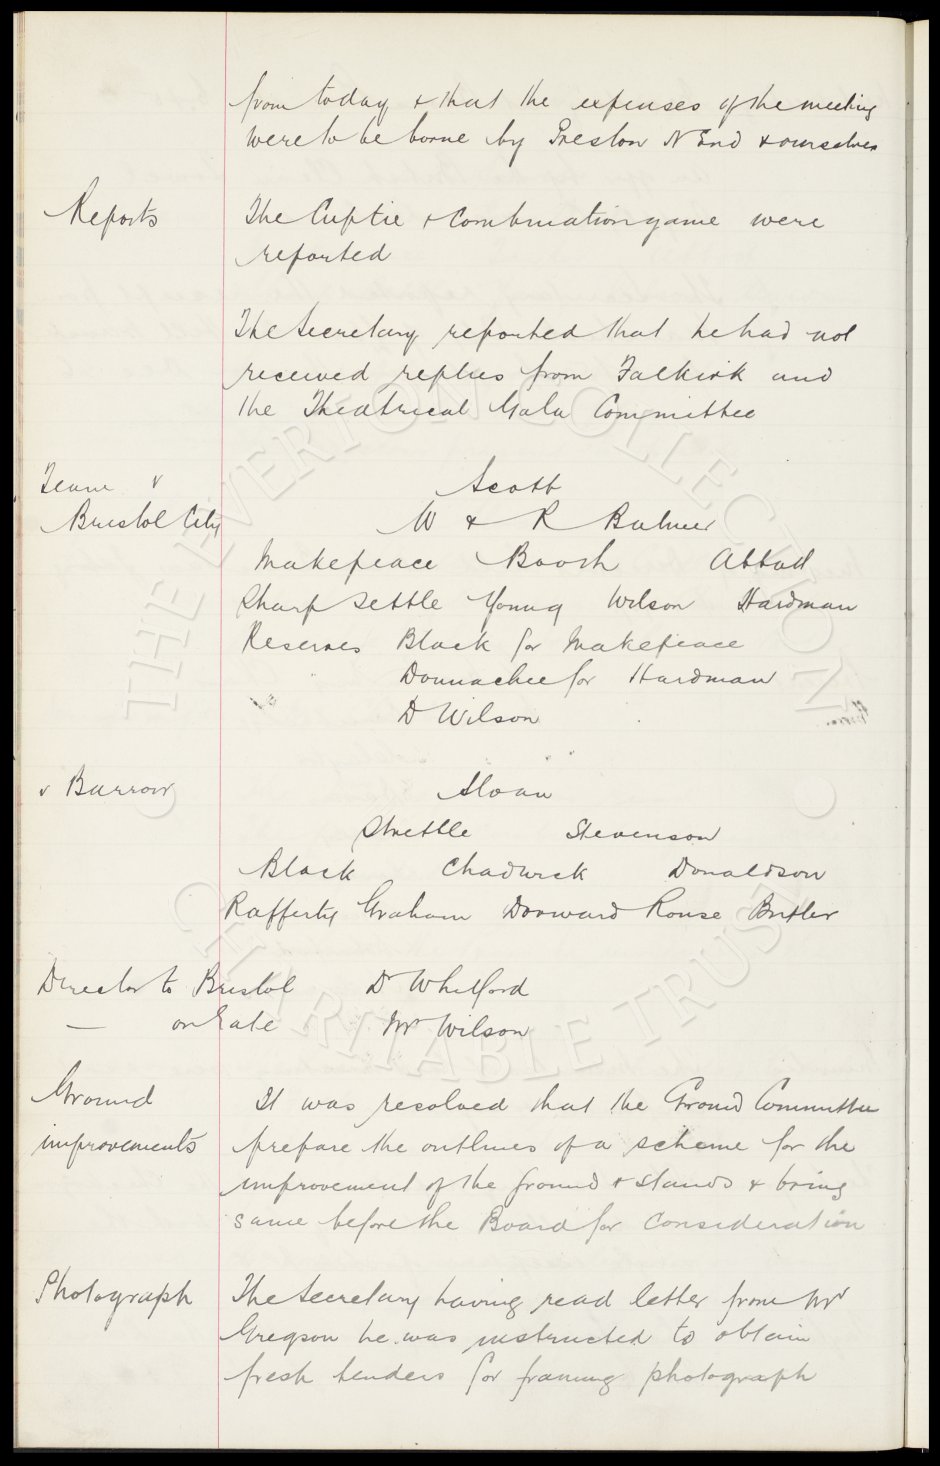 from today & that the expenses of the meeting
were to be borne by Preston N End & ourselves
Reports
The Cuptie & Combination game were
reported
The Secretary reported that he had not
received replies from Falkirk and
the Theatrical Gala Committee
Team v
Bristol City
Scott
W & R Balmer
Makepeace Booth Abbott
Sharp Settle Young Wilson Hardman
Reserves Black for Makepeace
Donnachie for Hardman
D Wilson
v Barrow
Sloan
Strettle Stevenson
Black Chadwick Donaldson
Rafferty Graham Dorward Rouse Butler
Director to Bristol Dr Whitford
— on Gate Mr Wilson
Ground
improvements
It was resolved that the Ground Committee
prepare the outlines of a scheme for the
improvement of the ground & stands & bring
same before the Board for consideration
Photograph
The Secretary having read letter from Mr
Gregson he was instructed to obtain
fresh tenders for framing photograph
THE EVERTON COLLECTION
CHARITABLE TRUST